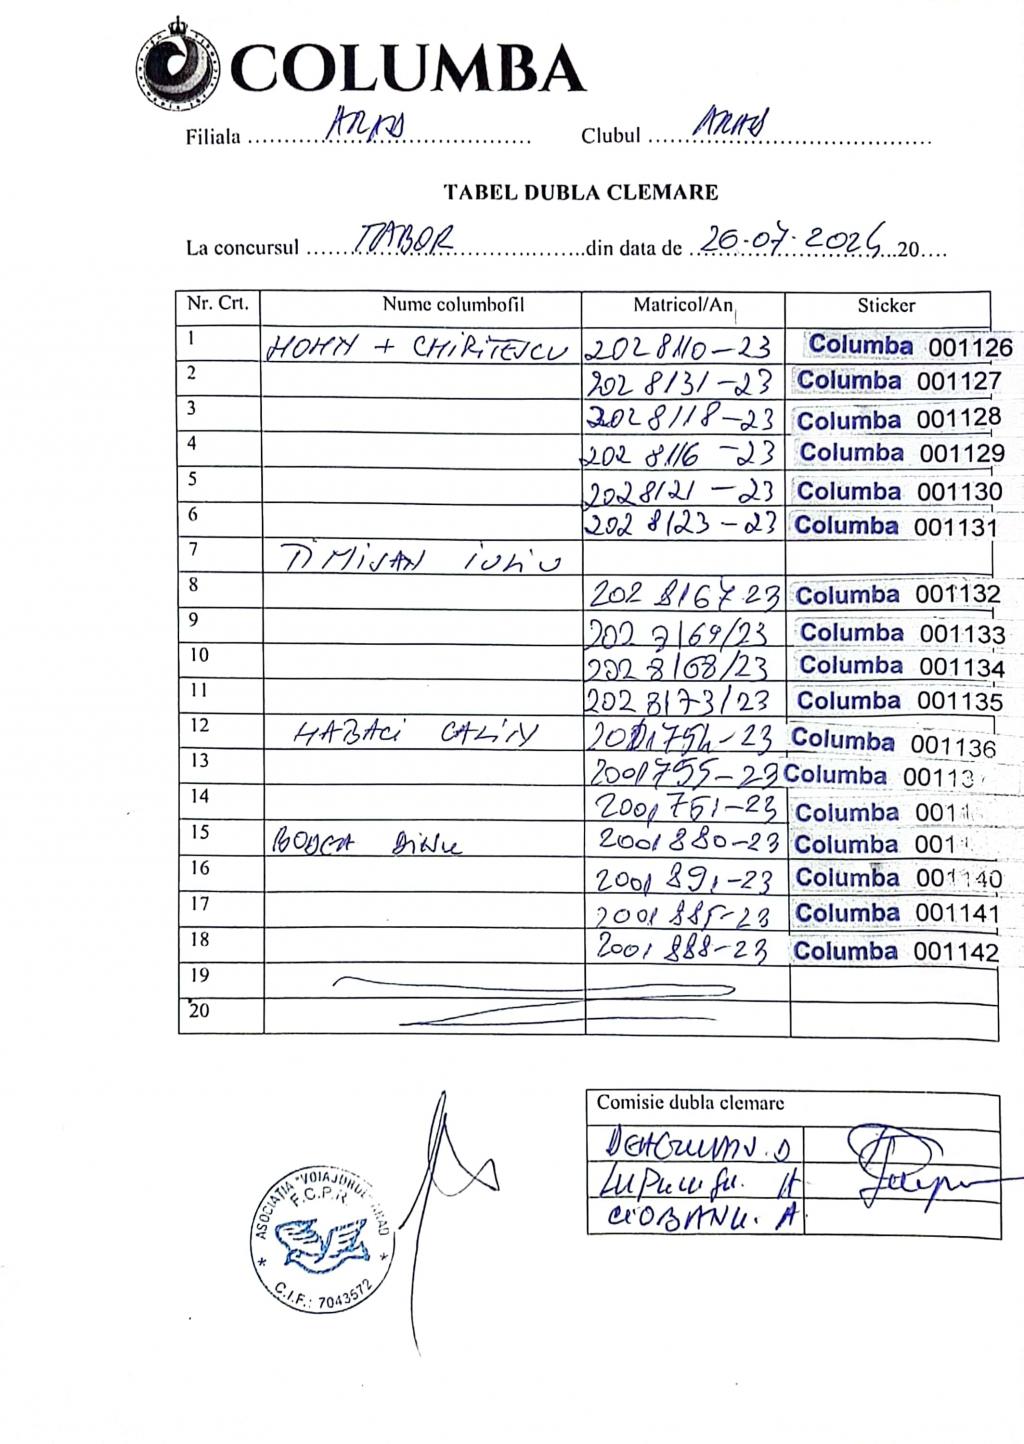 COLUMBA
Filiala ARAD Clubul ARAD
TABEL DUBLA CLEMARE
La concursul TABOR din data de 26.07.2024 20
Nr. Crt. Nume columbofil Matricol/An Sticker
1 HOHN + CHIRITESCU 2028110-23 Columba 001126
2 2028131-23 Columba 001127
3 2028118-23 Columba 001128
4 2028116-23 Columba 001129
5 2028121-23 Columba 001130
6 2028123-23 Columba 001131
7 TIMISAN IULIU
8 2028167-23 Columba 001132
9 2028169/23 Columba 001133
10 2028168/23 Columba 001134
11 2028173/23 Columba 001135
12 HABACI CALIN 2001754-23 Columba 001136
13 2001755-23 Columba 00113
14 2001751-23 Columba 001
15 BODEA DINU 2001880-23 Columba 001
16 2001891-23 Columba 001140
17 2001885-23 Columba 001141
18 2001888-23 Columba 001142
19
20
Comisie dubla clemare
LUPU
CIOBANU. A
ASOCIATIA "VOIAJORUL" ARAD
F.C.P.R.
* C.I.F.: 7043572 *